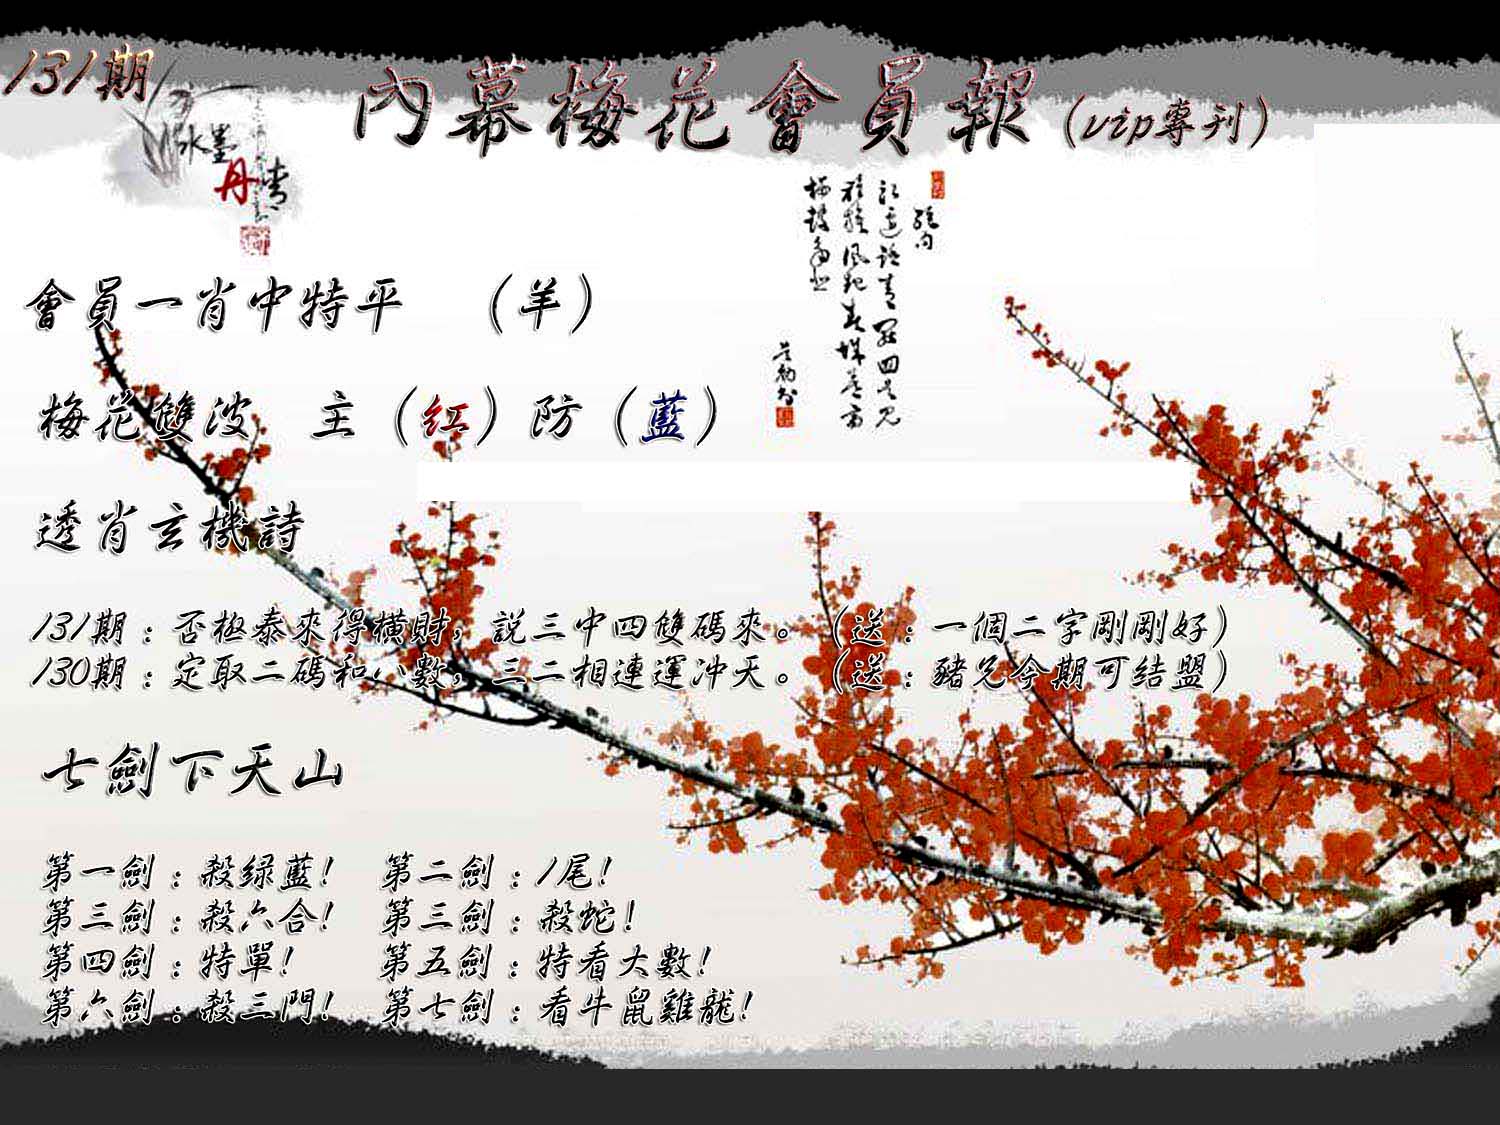 131期
內幕梅花會員報（vip專刊）
水墨
丹青
會員一肖中特平　（羊）
梅花雙波　主（红）防（藍）
透肖玄機詩
131期：否極泰來得橫財，説三中四雙碼來。（送：一個二字剛剛好）
130期：定取二碼和八數，三二相連運冲天。（送：豬兄今期可结盟）
七劍下天山
第一劍：殺绿藍！　第二劍：1尾！
第三劍：殺六合！　第三劍：殺蛇！
第四劍：特單！　第五劍：特看大數！
第六劍：殺三門！　第七劍：看牛鼠雞龍！